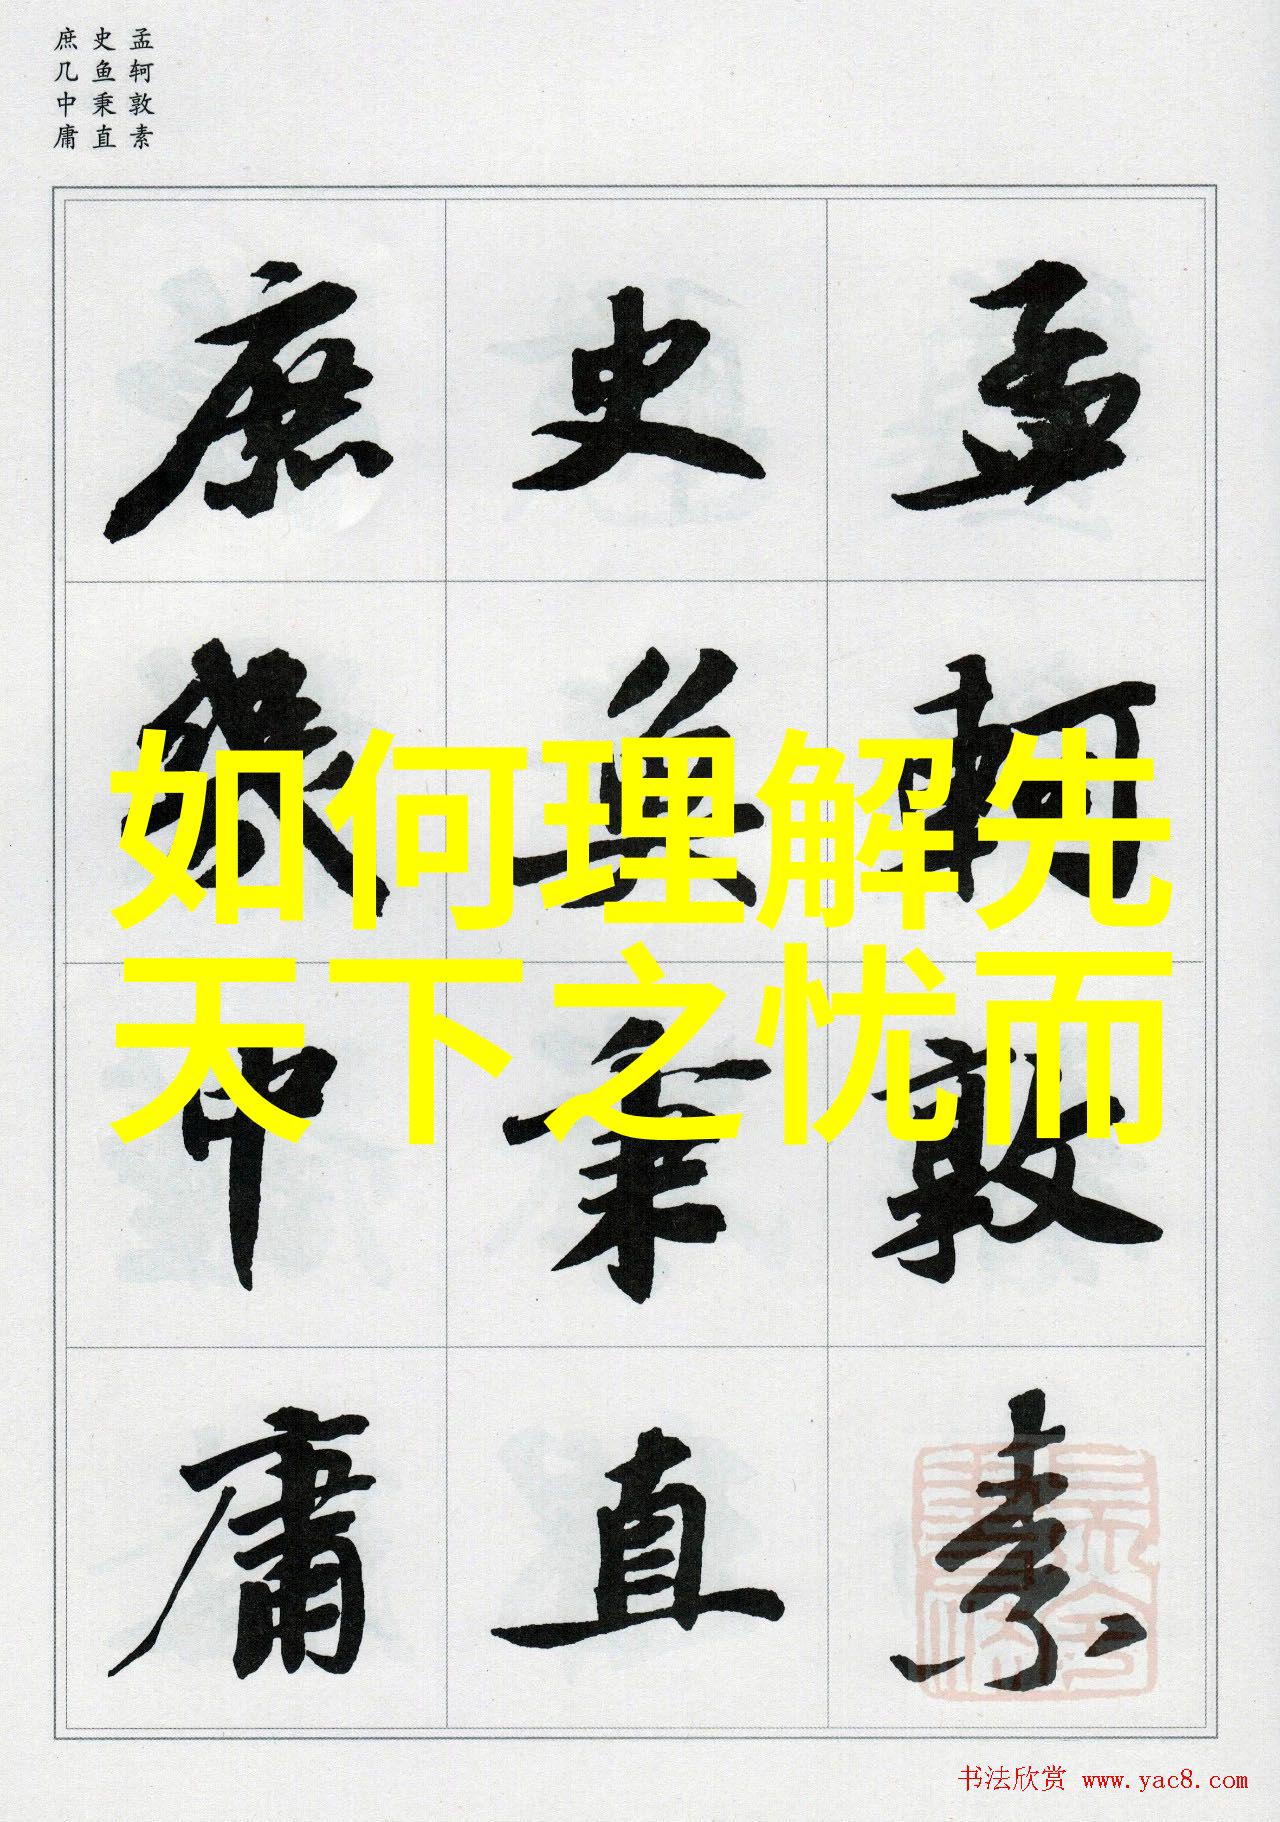 孟轲敦素
史鱼秉直
庶几中庸
孟軻敦素
史魚秉直
庶幾中庸
如何理解先
天下之忧而
书法欣赏 www.yac8.com